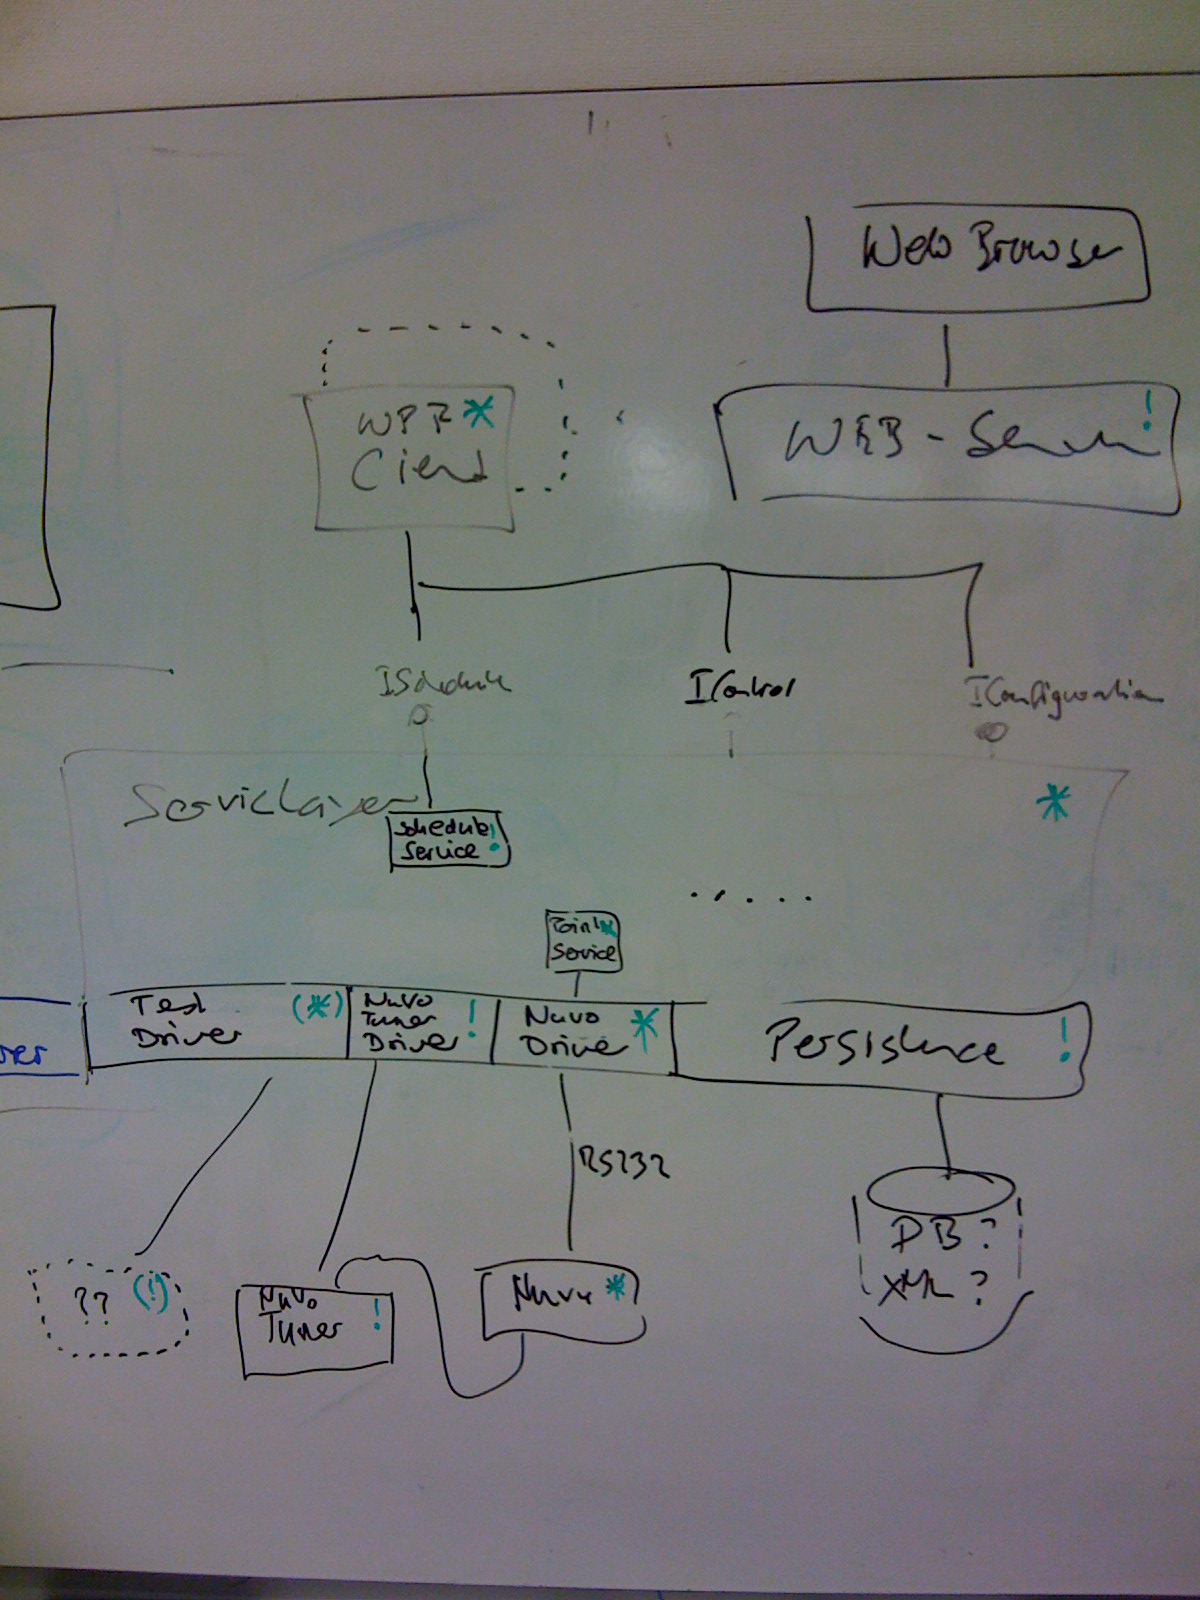 Web Browser
WPF *
Client
WEB-Server !
ISchedule
IControl
IConfiguration
ServicLayer
*
Schedule !
Service
.....
*
Service
Test
Driver (*)
Nuvo
Tuner
Driver !
Nuvo
Driver *
Persistence !
RS232
?? (!)
Nuvo
Tuner !
Nuvo *
DB?
XML?